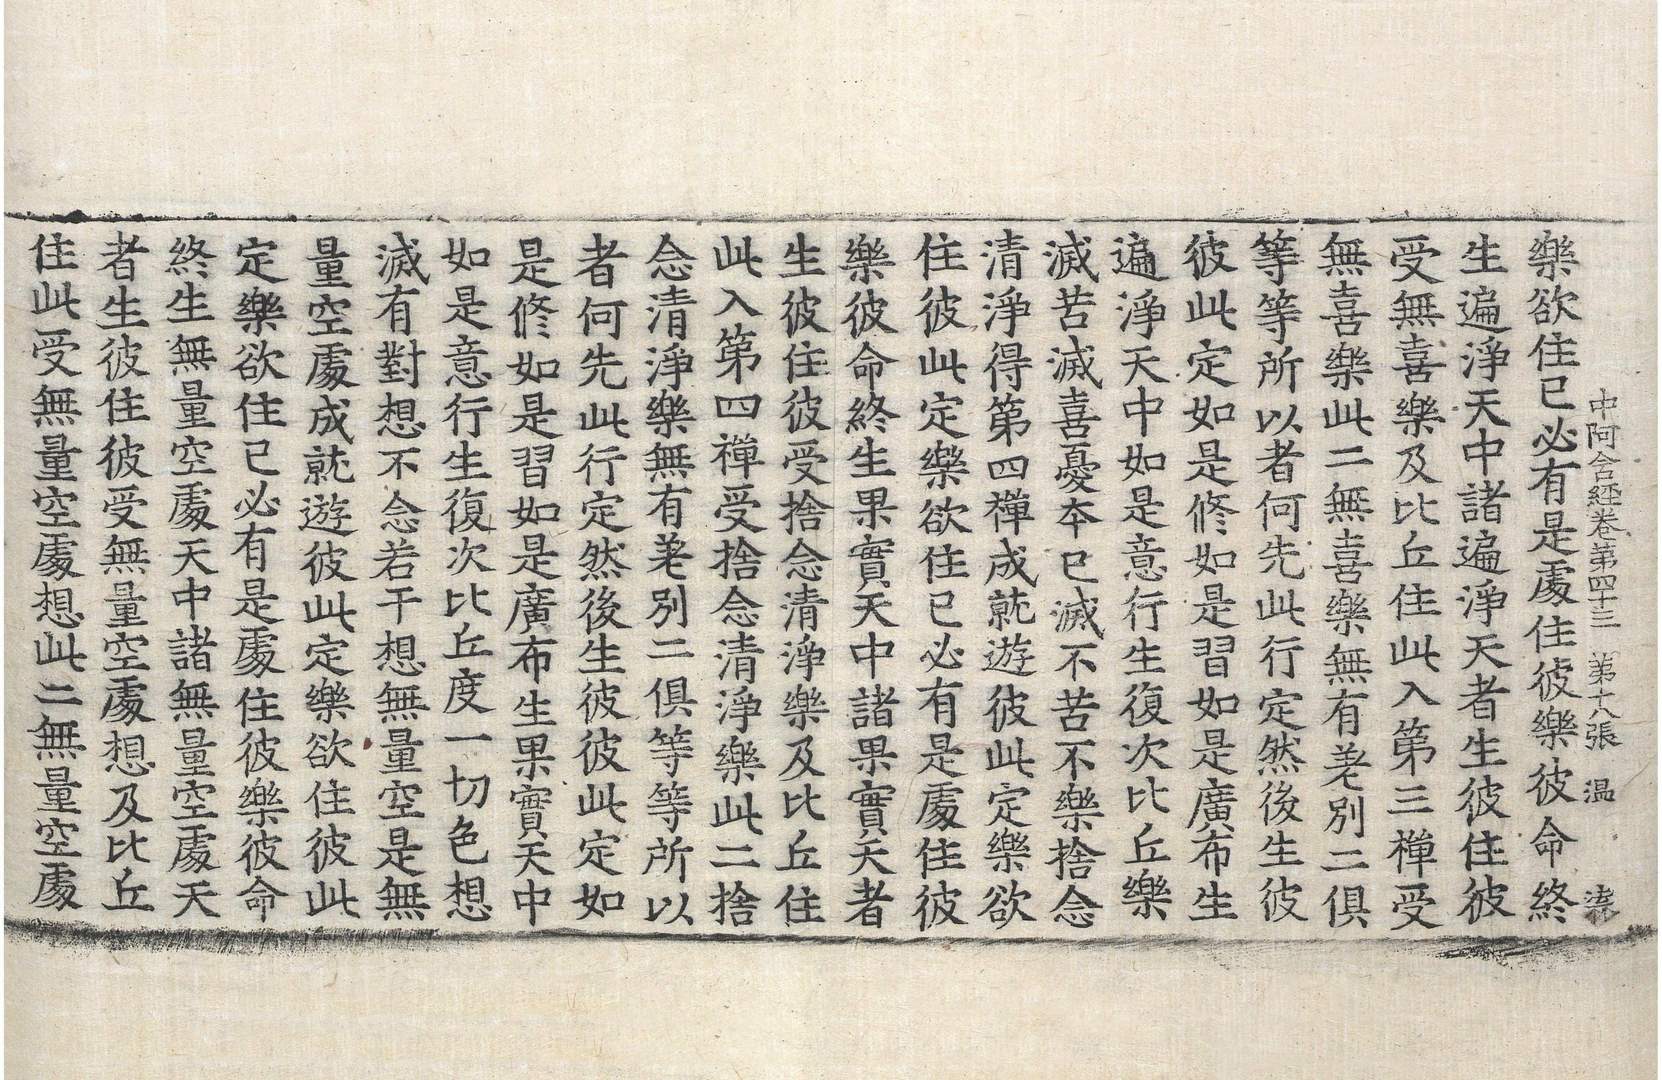 中阿含經卷第四十三　第十八張　温
樂欲住已必有是處住彼樂彼命終
生遍淨天中諸遍淨天者生彼住彼
受無喜樂及比丘住此入第三禪受
無喜樂此二無喜樂無有差別二俱
等等所以者何先此行定然後生彼
彼此定如是修如是習如是廣布生
遍淨天中如是意行生復次比丘樂
滅苦滅喜憂本已滅不苦不樂捨念
清淨得第四禪成就遊彼此定樂欲
住彼此定樂欲住已必有是處住彼
樂彼命終生果實天中諸果實天者
生彼住彼受捨念清淨樂及比丘住
此入第四禪受捨念清淨樂此二捨
念清淨樂無有差別二俱等等所以
者何先此行定然後生彼彼此定如
是修如是習如是廣布生果實天中
如是意行生復次比丘度一切色想
滅有對想不念若干想無量空是無
量空處成就遊彼此定樂欲住彼此
定樂欲住已必有是處住彼樂彼命
終生無量空處天中諸無量空處天
者生彼住彼受無量空處想及比丘
住此受無量空處想此二無量空處